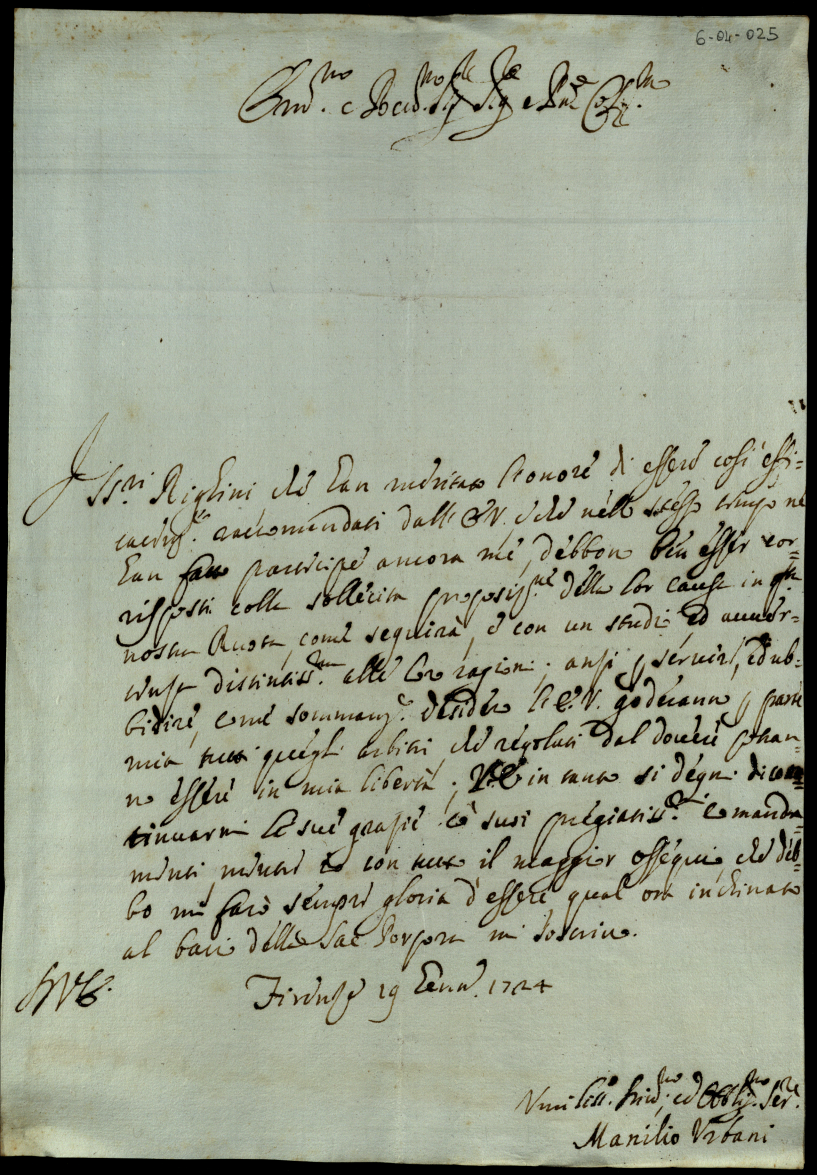 6-04-025
Em.mo e Rev.mo Sig.re Sig.re e P.ne Col.mo
I SS.ri Righini che han meritato l'onore di essere così effi=
cacem.te raccomandati dall' E.V., e che nello stesso tempo ne
han fatto partecipe ancora me, debbon ben esser cor=
risposti colla sollecita proposiz.ne della lor causa in q.ta
nostra Ruota, come seguirà, e con un studio, ed avver=
tenza distintiss.ma alle lor ragioni; anzi p servire, ed ub=
bidire, come sommam.e desidero l'E.V. goderanno p parte
mia tutti quegli arbitri, che regolati dal dovere potran=
no essere in mia libertà; V.E. in tanto si degni di con=
tinuarmi le sue grazie co suoi pregiatiss.mi comanda=
menti, mentre io con tutto il maggior ossequio, che deb=
bo mi farò sempre gloria d'essere qual ora inchinato
al bacio della Sac. Porpora mi soscrivo.
Firenze 19 Genn. 1724
Umiliss.o Dev.mo ed Obblig.mo Ser.re
Manilio Urbani